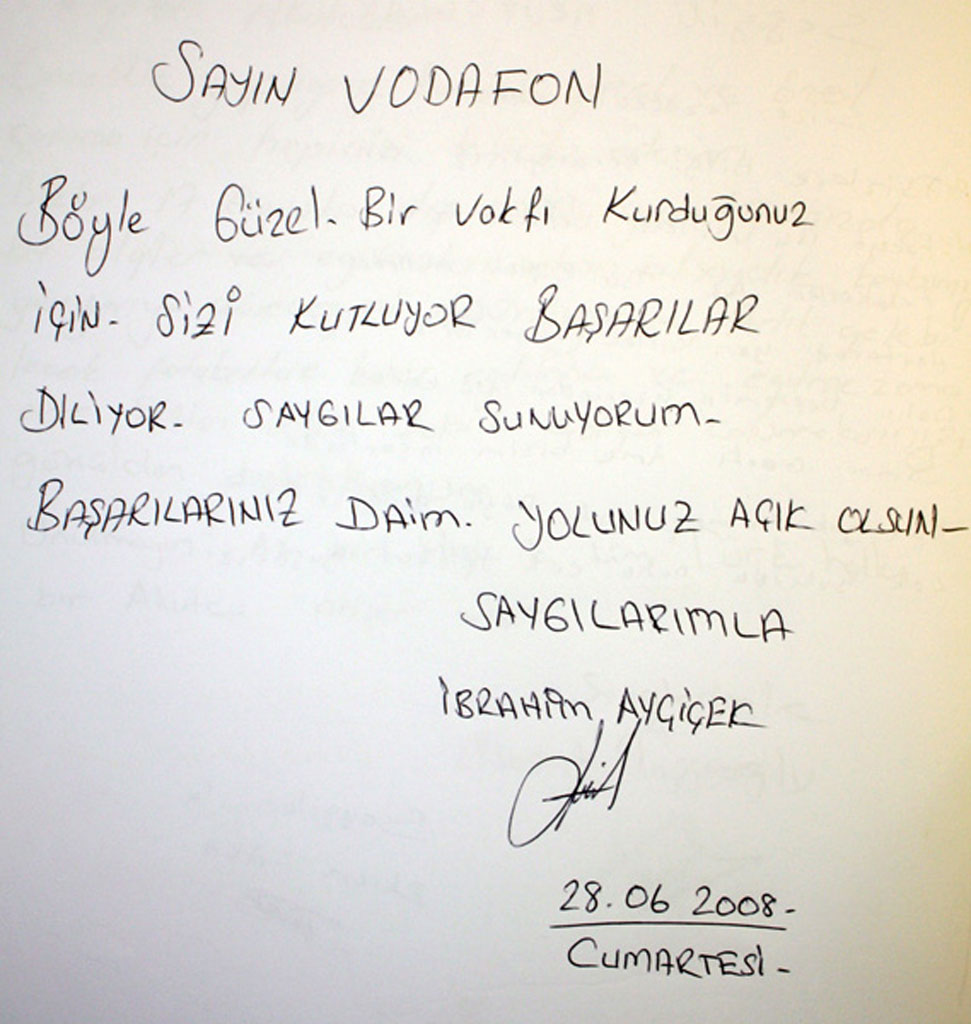 SAYIN VODAFON
Böyle Güzel. Bir Vakfı Kurduğunuz
İÇİN- SİZİ KUTLUYOR BAŞARILAR
DILIYOR- SAYGILAR SUNUYORUM-
BAŞARILARINIZ DAİM. YOLUNUZ AÇIK OLSUN-
SAYGILARIMLA
İBRAHİM AYGİÇEK
28.06 2008-
CUMARTESİ-